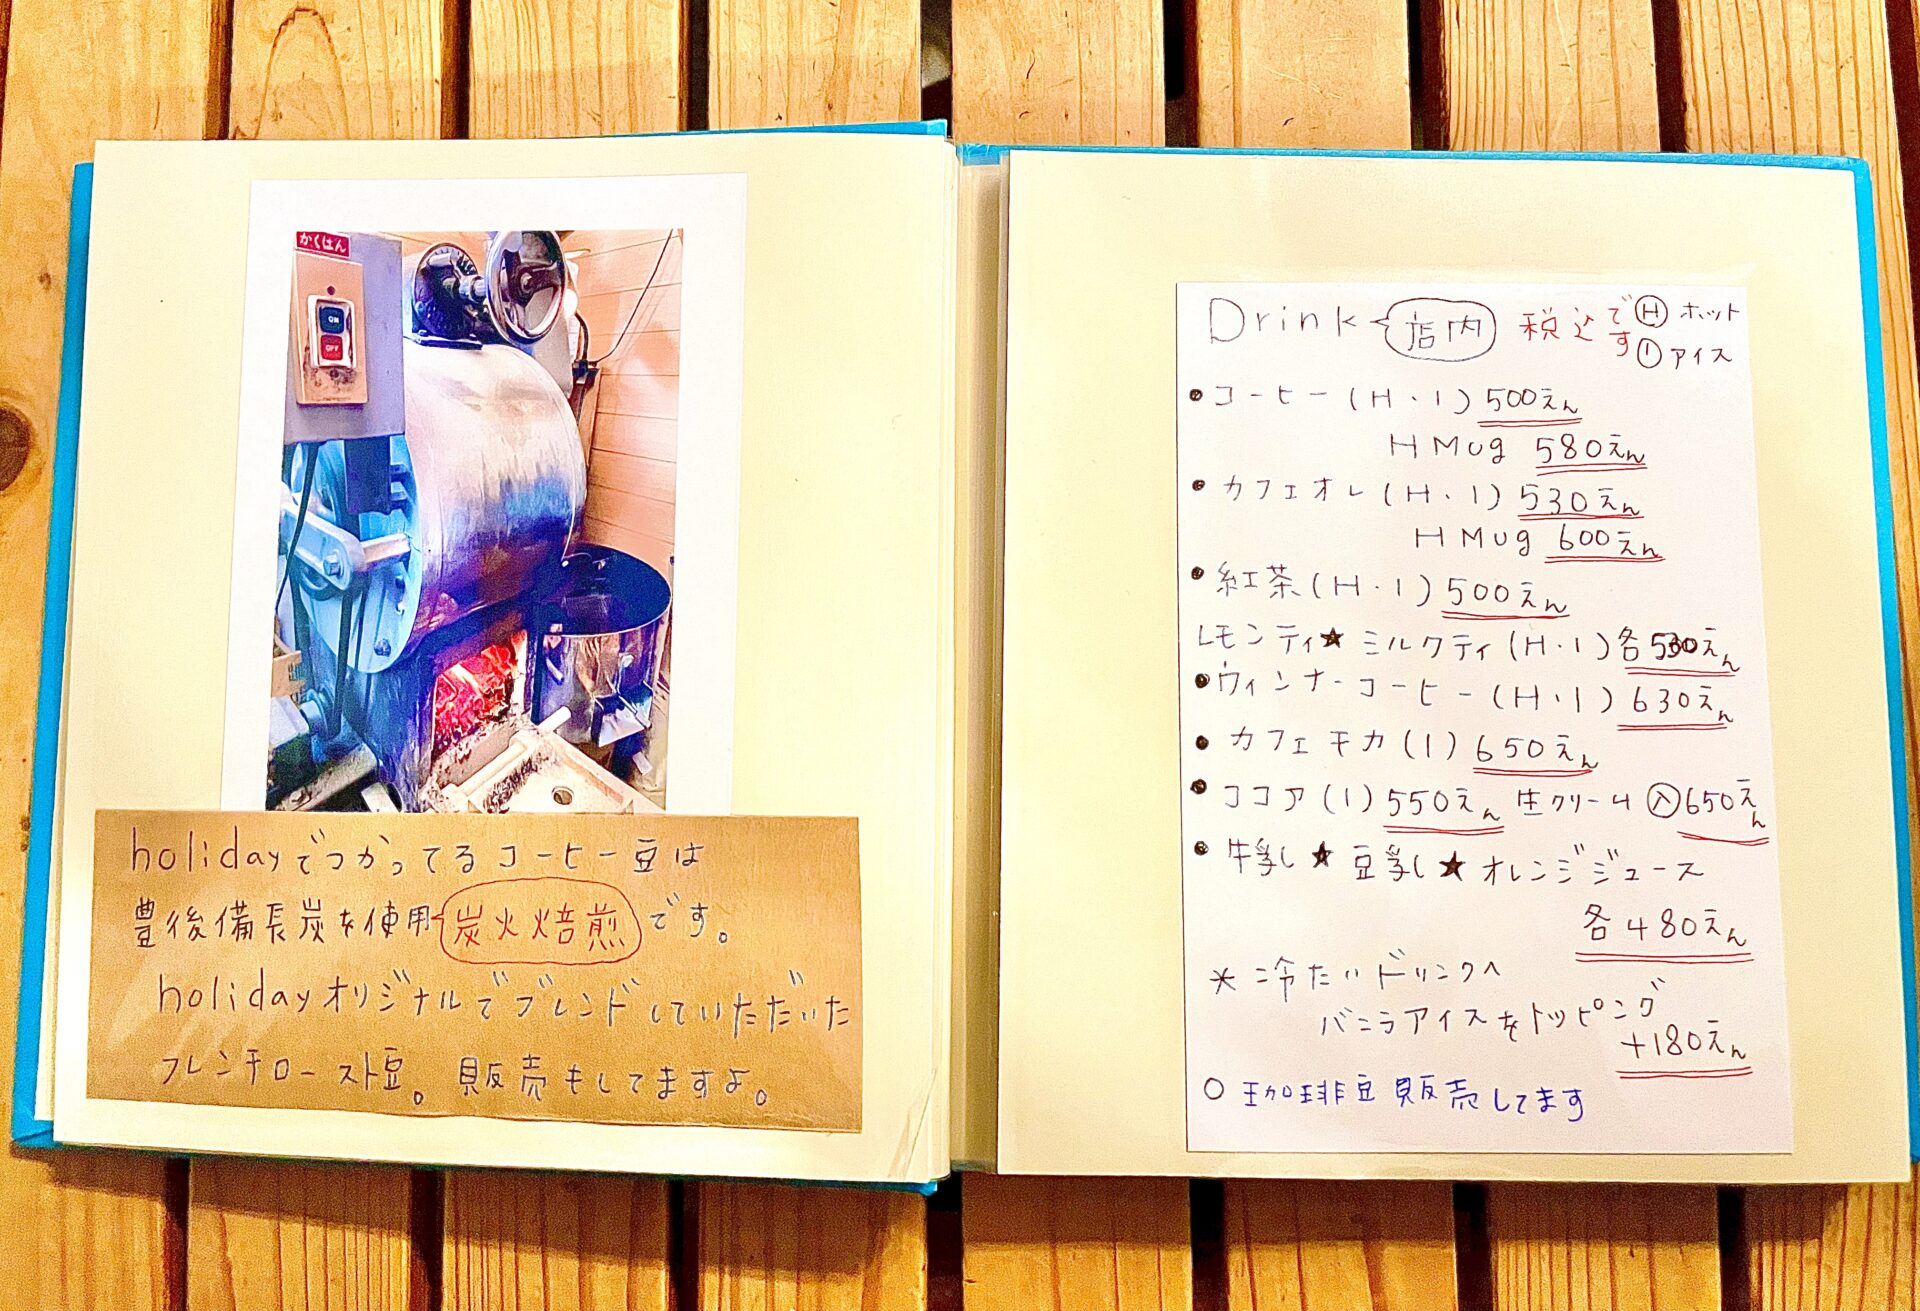 かくはん
ON
OFF
holidayでつかってるコーヒー豆は
豊後備長炭を使用 炭火焙煎 です。
holidayオリジナルでブレンドしていただいた
フレンチロースト豆。販売もしてますよ。
Drink 店内 税込です Ⓗ ホット
Ⓘ アイス
• コーヒー (H・I) 500えん
H Mug 580えん
• カフェオレ (H・I) 530えん
H Mug 600えん
• 紅茶 (H・I) 500えん
レモンティ★ミルクティ (H・I) 各530えん
• ウィンナーコーヒー (H・I) 630えん
• カフェモカ (I) 650えん
• ココア (I) 550えん 生クリーム入 650えん
• 牛乳★豆乳★オレンジジュース
各480えん
* 冷たいドリンクへ
バニラアイスをトッピング
+180えん
○ 珈琲豆販売してます